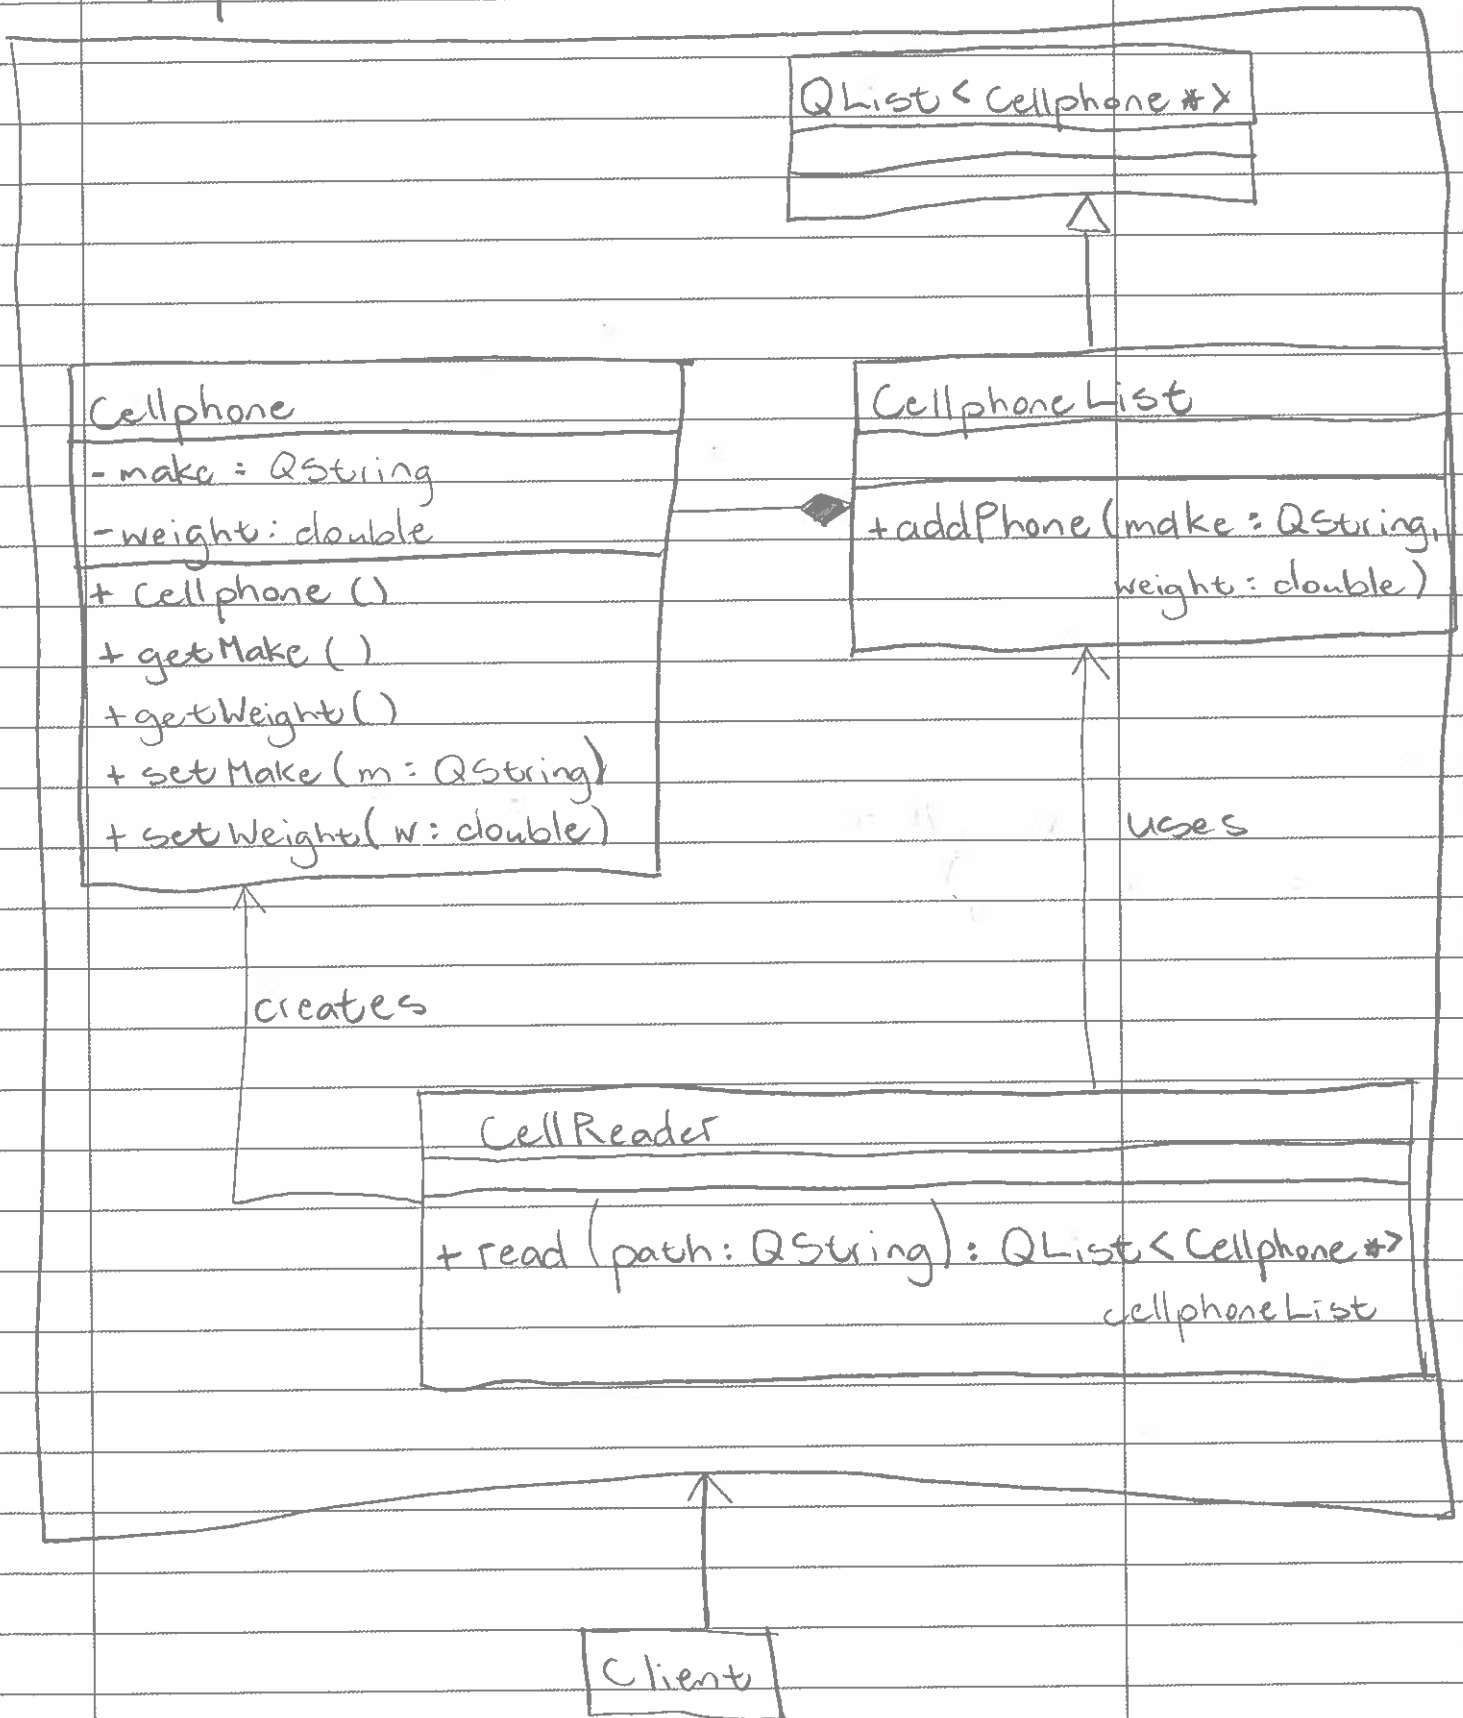 QList<Cellphone*>
Cellphone
- make : QString
- weight : double
+ Cellphone ()
+ getMake ()
+ getWeight ()
+ setMake (m : QString)
+ setWeight (w : double)
CellphoneList
+ addPhone (make : QString,
weight : double)
uses
creates
CellReader
+ read (path : QString) : QList<Cellphone*>
cellphoneList
Client